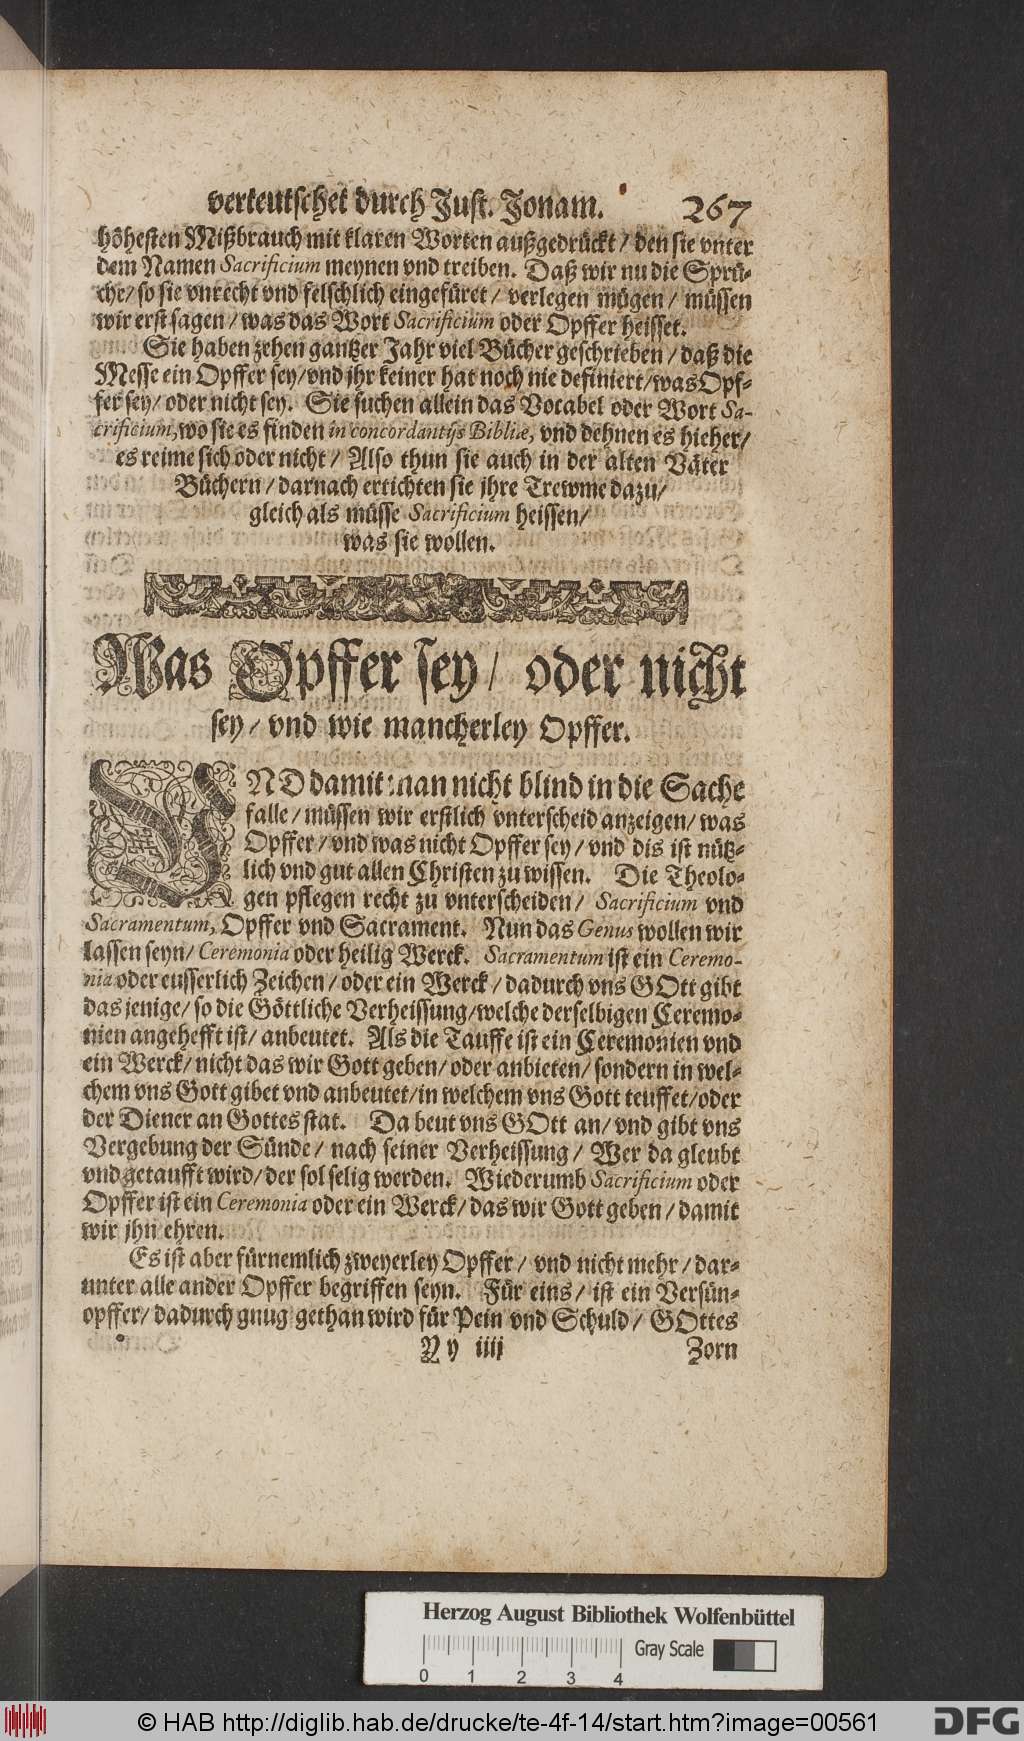 verteutschet durch Just. Jonam. 267
höhesten Mißbrauch mit klaren Worten außgedrückt / den sie vnter
dem Namen Sacrificium meynen vnd treiben. Daß wir nu die Sprü-
che / so sie vnrecht vnd felschlich eingefüret / verlegen mügen / müssen
wir erst sagen / was das Wort Sacrificium oder Opffer heisset.
Sie haben zehen gantzer Jahr viel Bücher geschrieben / daß die
Messe ein Opffer sey / vnd jhr keiner hat noch nie definiert / was Opf-
fer sey / oder nicht sey. Sie suchen allein das Vocabel oder Wort Sa-
crificium, wo sie es finden in concordantijs Bibliæ, vnd dehnen es hieher /
es reime sich oder nicht / Also thun sie auch in der alten Väter
Büchern / darnach ertichten sie jhre Trewme dazu /
gleich als müsse Sacrificium heissen /
was sie wollen.
Was Opffer sey / oder nicht
sey / vnd wie mancherley Opffer.
VND damit man nicht blind in die Sache
falle / müssen wir erstlich vnterscheid anzeigen / was
Opffer / vnd was nicht Opffer sey / vnd dis ist nütz-
lich vnd gut allen Christen zu wissen. Die Theolo-
gen pflegen recht zu vnterscheiden / Sacrificium vnd
Sacramentum, Opffer vnd Sacrament. Nun das Genus wollen wir
lassen seyn / Ceremonia oder heilig Werck. Sacramentum ist ein Ceremo-
nia oder eusserlich Zeichen / oder ein Werck / dadurch vns GOtt gibt
das jenige / so die Göttliche Verheissung / welche derselbigen Ceremo-
nien angehefft ist / anbeutet. Als die Tauffe ist ein Ceremonien vnd
ein Werck / nicht das wir Gott geben / oder anbieten / sondern in wel-
chem vns Gott gibet vnd anbeutet / in welchem vns Gott teuffet / oder
der Diener an Gottes stat. Da beut vns GOtt an / vnd gibt vns
Vergebung der Sünde / nach seiner Verheissung / Wer da gleubt
vnd getaufft wird / der sol selig werden. Wiederumb Sacrificium oder
Opffer ist ein Ceremonia oder ein Werck / das wir Gott geben / damit
wir jhn ehren.
Es ist aber fürnemlich zweyerley Opffer / vnd nicht mehr / dar-
unter alle ander Opffer begriffen seyn. Für eins / ist ein Versün-
opffer / dadurch gnug gethan wird für Pein vnd Schuld / GOttes
Y y iiij Zorn
Herzog August Bibliothek Wolfenbüttel
Gray Scale
0 1 2 3 4
© HAB http://diglib.hab.de/drucke/te-4f-14/start.htm?image=00561
DFG